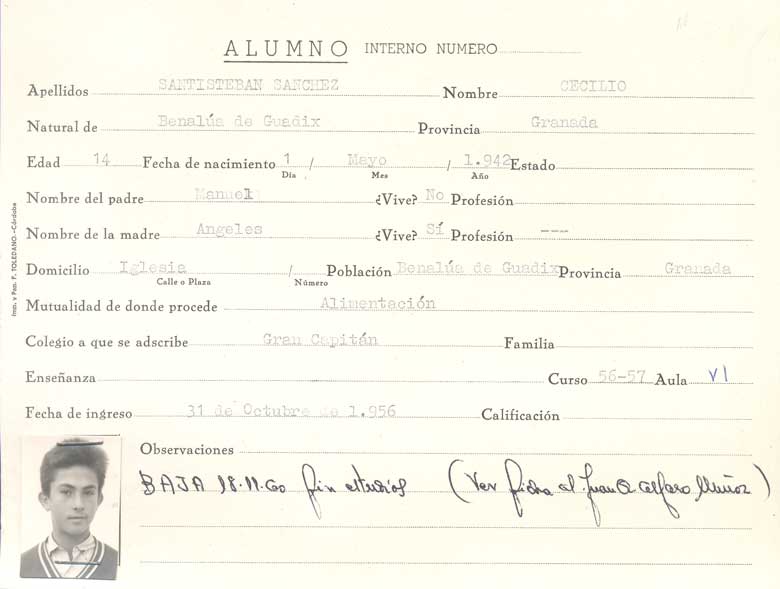 ALUMNO INTERNO NUMERO
Apellidos SANTISTEBAN SANCHEZ Nombre CECILIO
Natural de Benalúa de Guadix Provincia Granada
Edad 14 Fecha de nacimiento 1 / Mayo / 1.942 Estado
Día Mes Año
Nombre del padre Manuel ¿Vive? No Profesión
Nombre de la madre Angeles ¿Vive? Sí Profesión ---
Domicilio Iglesia / Población Benalúa de Guadix Provincia Granada
Calle o Plaza Número
Mutualidad de donde procede Alimentación
Colegio a que se adscribe Gran Capitán Familia
Enseñanza Curso 56-57 Aula VI
Fecha de ingreso 31 de Octubre de 1.956 Calificación
Observaciones
BAJA 18.11.60 fin estudios (Ver ficha al. Juan A. Alfaro Muñoz)
Imp. y Pap. F. TOLEDANO.-Córdoba